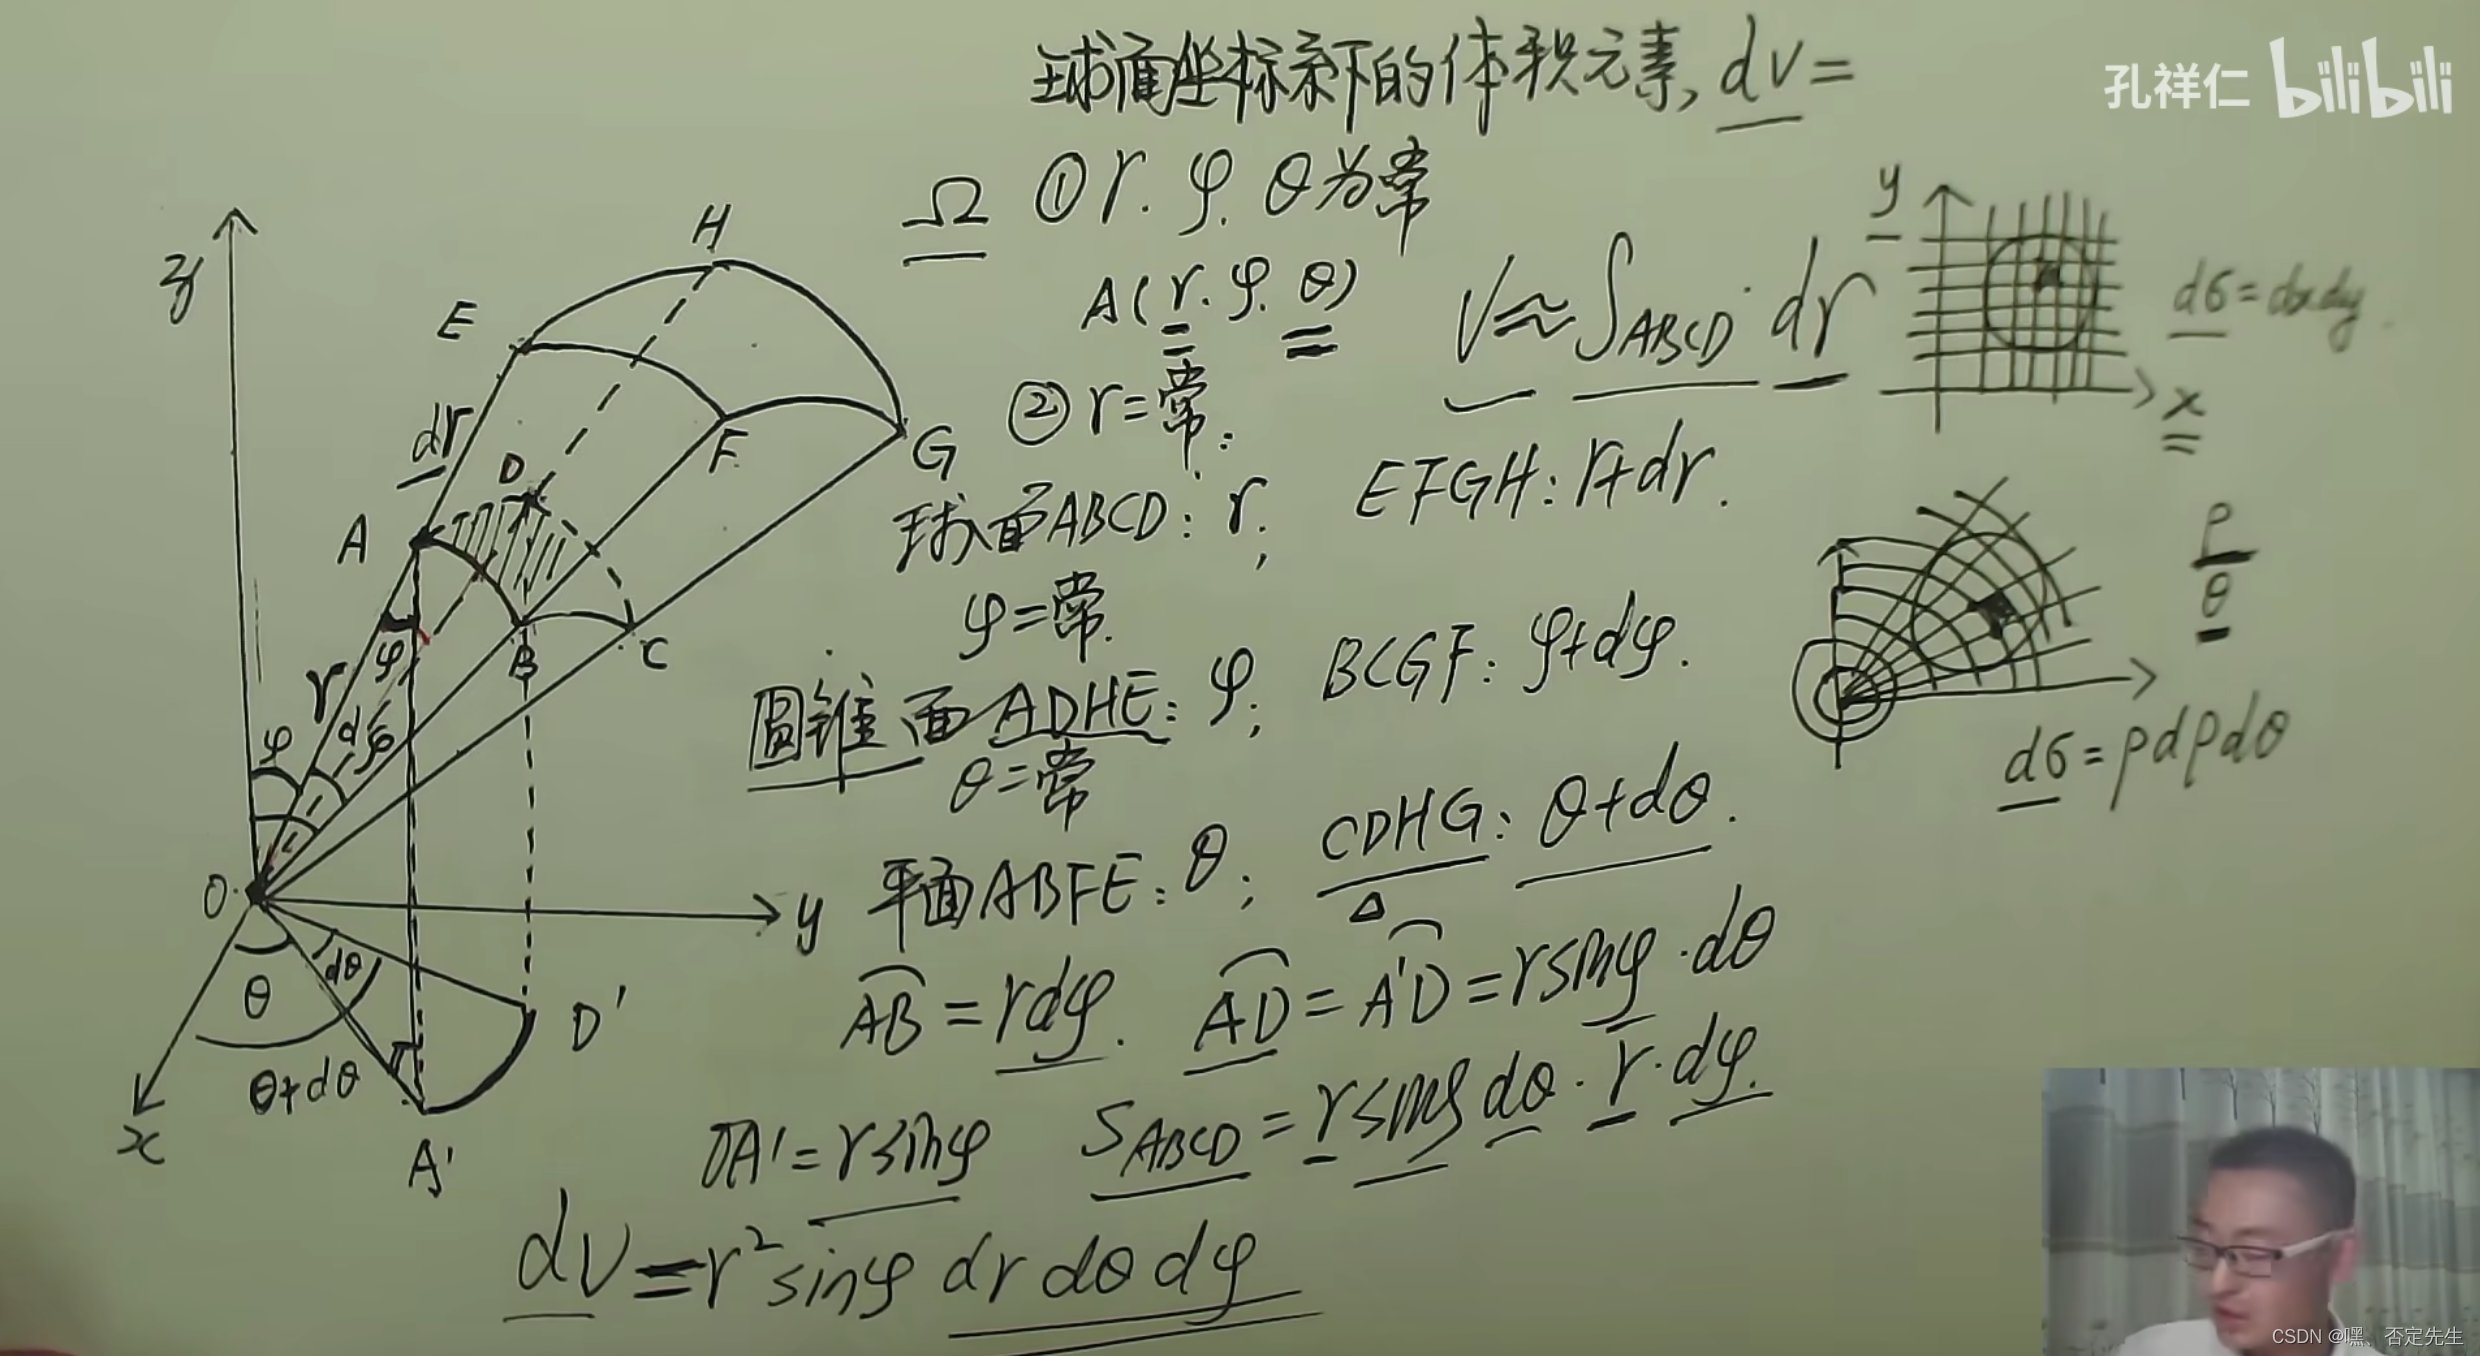 球面坐标系下的体积元素, dv=
孔祥仁 bilibili
Ω ① r. φ. θ为常
A(r. φ. θ)
V≈S_ABCD · dr
② r=常.
球面ABCD: r; EFGH: r+dr.
φ=常.
圆锥面ADHE: φ; BCGF: φ+dφ.
θ=常
平面ABFE: θ; CDHG: θ+dθ.
AB=rdφ. AD=A'D=rsinφ·dθ
OA'=rsinφ S_ABCD=rsinφdθ·r·dφ.
dv=r²sinφ dr dθ dφ
z
H
E
dr
D
F
G
A
φ
B
C
r
dφ
φ
O
y
θ
dθ
D'
θ+dθ
x
A'
y
dσ=dxdy
x
ρ
θ
dσ=ρdρdθ
CSDN @嘿、否定先生